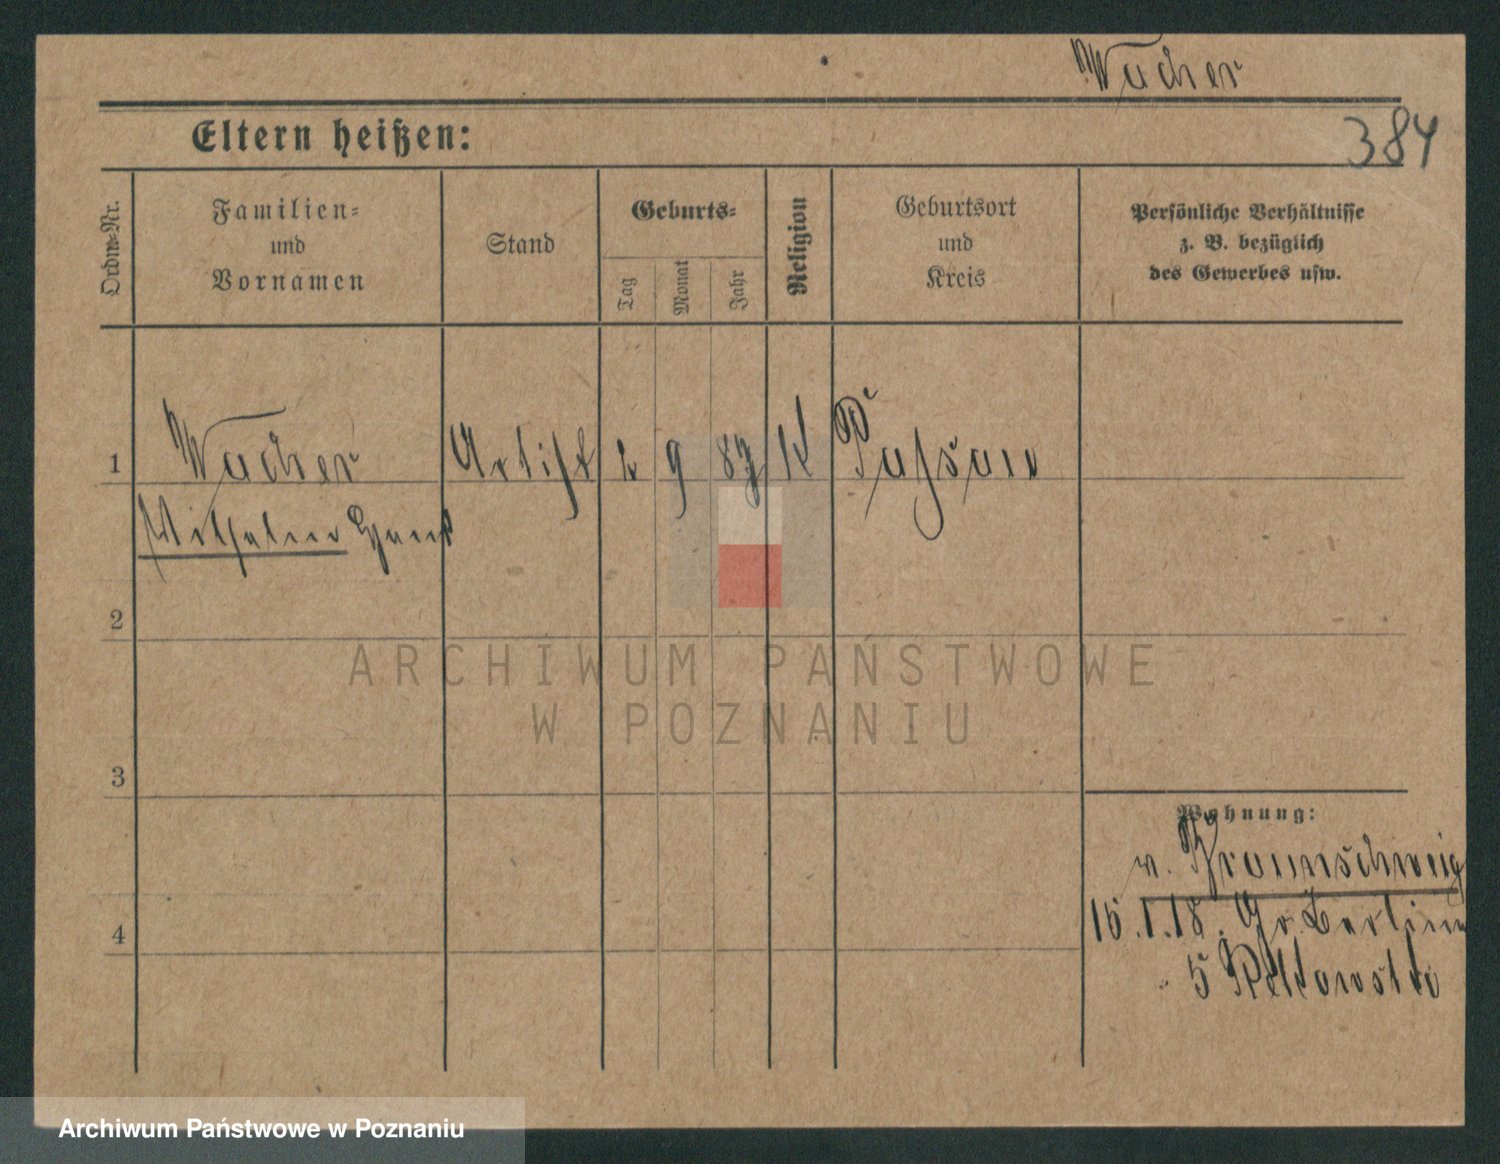 Wacher
384
Eltern heißen:
Ordn.-Nr.
Familien-
und
Vornamen
Stand
Geburts-
Tag
Monat
Jahr
Religion
Geburtsort
und
Kreis
Persönliche Verhältnisse
z. B. bezüglich
des Gewerbes usw.
1 Wacher Artist 2 9 87 K Passau
Wilhelm Hans
2
3
4
Wohnung:
v. Braunschweig
15.1.18. Gr. Berliner
5
ARCHIWUM PAŃSTWOWE
W POZNANIU
Archiwum Państwowe w Poznaniu